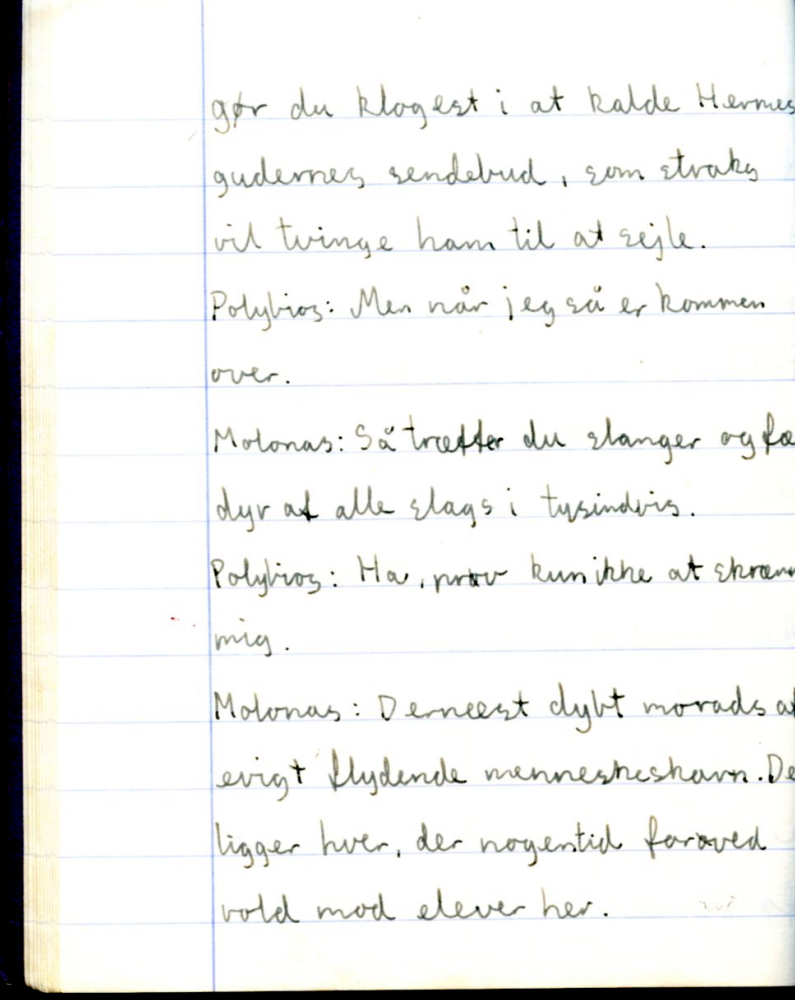 gør du klogest i at kalde Hermes
gudernes sendebud, som straks
vil tvinge ham til at sejle.
Polybios: Men når jeg så er kommen
over.
Molonas: Så træffer du slanger og fæ
dyr af alle slags i tusindvis.
Polybios: Ha, prøv kun ikke at skræm
mig.
Molonas: Dernæst dybt morads af
evigt flydende menneskeskarn. De
ligger hver, der nogentid
vold mod elever her.